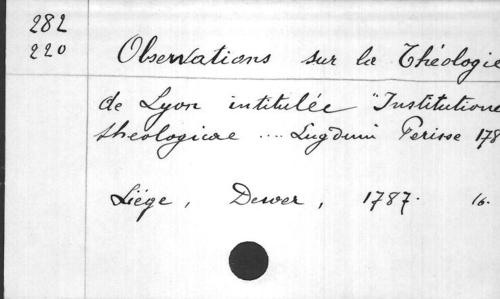 282
220
Observations sur la Théologie
de Lyon intitulée "Institutione
theologicae .... Lugduni Perisse 178
Liége, Dewer, 1787. 16.